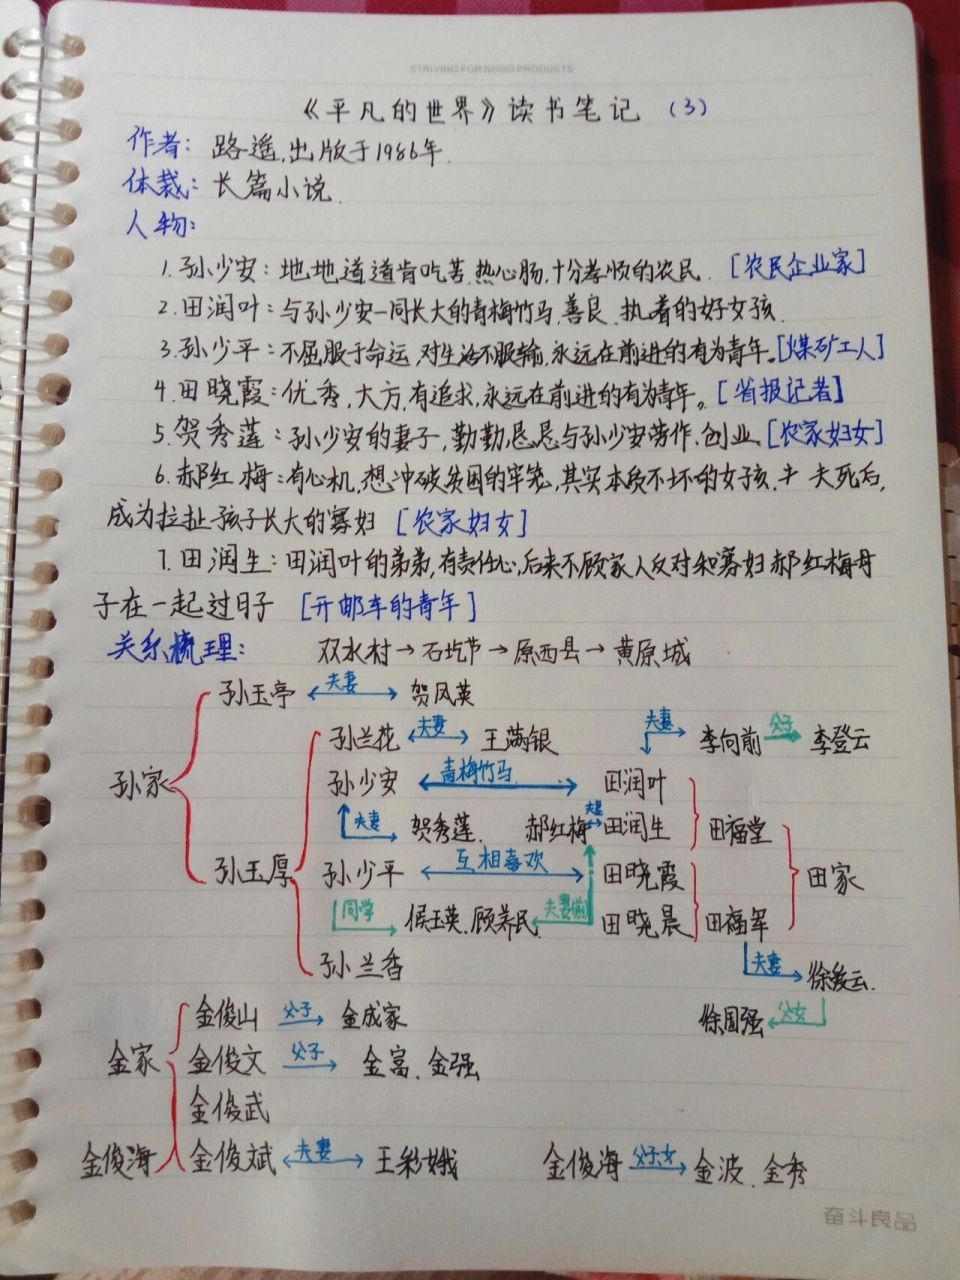 STRIVING FOR GOOD PRODUCTS
《平凡的世界》读书笔记 (3)
作者: 路遥,出版于1986年.
体裁: 长篇小说.
人物:
1. 孙少安: 地地道道肯吃苦.热心肠,十分孝顺的农民. [农民企业家]
2. 田润叶: 与孙少安一同长大的青梅竹马,善良.执着的好女孩.
3. 孙少平: 不屈服于命运,对生活不服输,永远在前进的有为青年。[煤矿工人]
4. 田晓霞: 优秀,大方,有追求,永远在前进的有为青年。[省报记者]
5. 贺秀莲: 孙少安的妻子,勤勤恳恳与孙少安劳作.创业. [农家妇女]
6. 郝红梅: 有心机,想冲破贫困的牢笼,其实本质不坏的女孩. 夫死后,
成为拉扯孩子长大的寡妇 [农家妇女]
7. 田润生: 田润叶的弟弟,有责任心,后来不顾家人反对和寡妇郝红梅母
子在一起过日子 [开邮车的青年]
关系梳理: 双水村→石圪节→原西县→黄原城
孙玉亭 夫妻 贺凤英
孙兰花 夫妻 王满银 夫妻 李向前 父子 李登云
孙家 孙少安 青梅竹马 田润叶
夫妻 贺秀莲. 郝红梅 夫妻 田润生 田福堂
孙玉厚 孙少平 互相喜欢 田晓霞 田家
同学 侯玉英.顾养民 夫妻前 田晓晨 田福军
孙兰香 夫妻 徐爱云.
金俊山 父子 金成家 徐国强 父女
金家 金俊文 父子 金富.金强
金俊武
金俊海 金俊斌 夫妻 王彩娥 金俊海 父子女 金波.金秀
奋斗良品